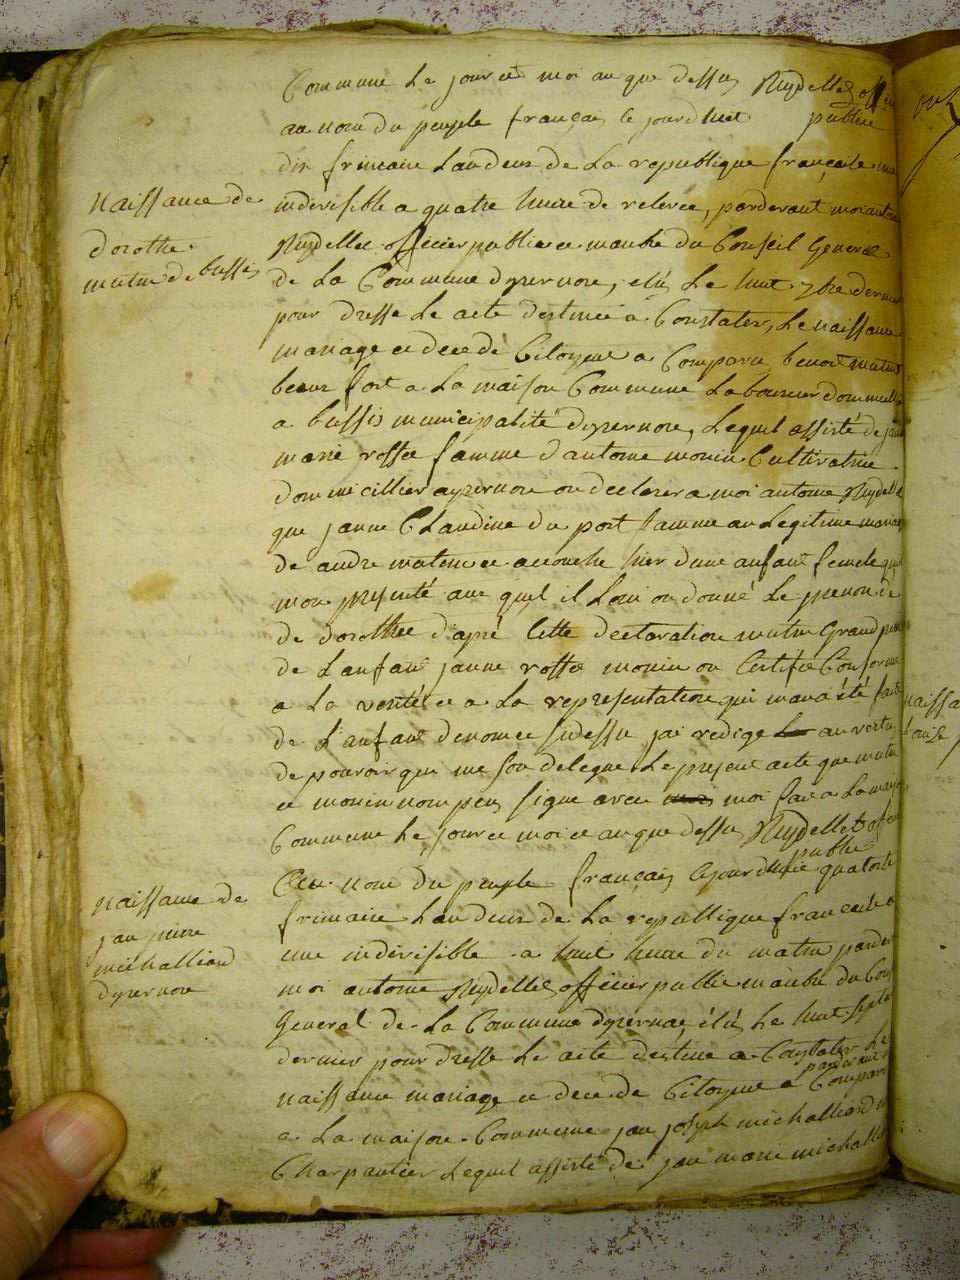 Commune Le jour et moi an que dessus Ruydellet off
publice
au nom du peuple français le jourdhuit
dix frimaire Landeux de La republique française une
indivisible a quatre heure de relevee, pardevant moi antoi
Naissance de
dorothe
matin de bussis
Ruydellet officier publice manbre du Conseil General
de La Commune dyzernore, elû Le huit 7bre dernier
pour dresse Le acte destinée a Constater, Le naissance
mariage et decedé Citoyene a Comparu benoit matin
beaux fort a La maison Commune Laboureur dommeillie
a bussis municipalité dyzernore, Lequel assisté de jean
marie rosse famme dantoine monin Cultivatrice
dommicillier ayzernore on declarer a moi antoine Ruydellet
que janne Claudine du port famme an Legitime mariage
de andre matin et accouche hier dune anfant femele quil
mon presenté auquel il Loui on donné Le prenon de
de dorothée dapré Cette declaration matin Grand pere
de Lanfant janne rosse monin on Certifie Conforme
a La verité et a La representation qui mava été faite
de Lanfant denomee sidessu jai redige au vertu
de pouvoir qui me son delegue Le present acte que matin
et monin nompeu signe avec moi fait a La maison
Commune Le jour et moi et an que dessu Ruydellet offi
publice
Naissance de
jan piere
michalliard
dyzernore
au nom du peuple français Lejourdhuit quatorse
frimaire Landeux de La republique française
une indivisible a huit heure du matin pardev
moi antoine Ruydellet officier publice manbre du Cons
General de La Commune dyzernore, élû, Le huit septe
dernier pour dresse Le acte destine a Constater Le
naissance mariage et decede Citoyene a Comparu
a La maison Commune jan joseph michalliard
Charpantier Lequel assisté de jan marie michalli